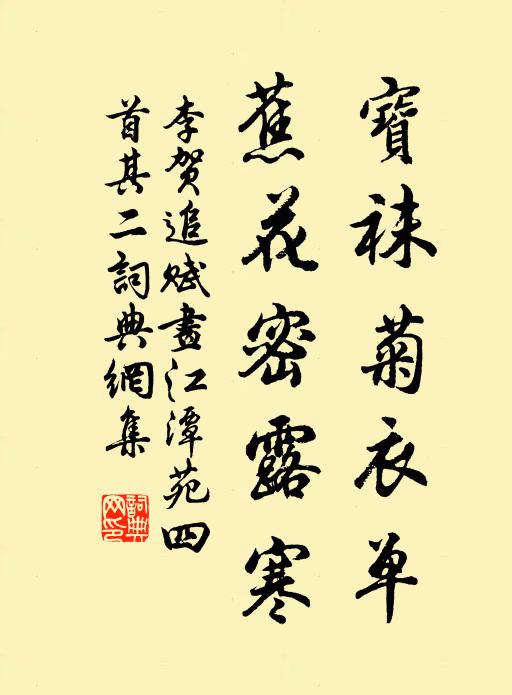 寶袜菊衣单
蕉花密露寒
李贺追赋畫江潭苑四
首其二詞典網集
詞典网印